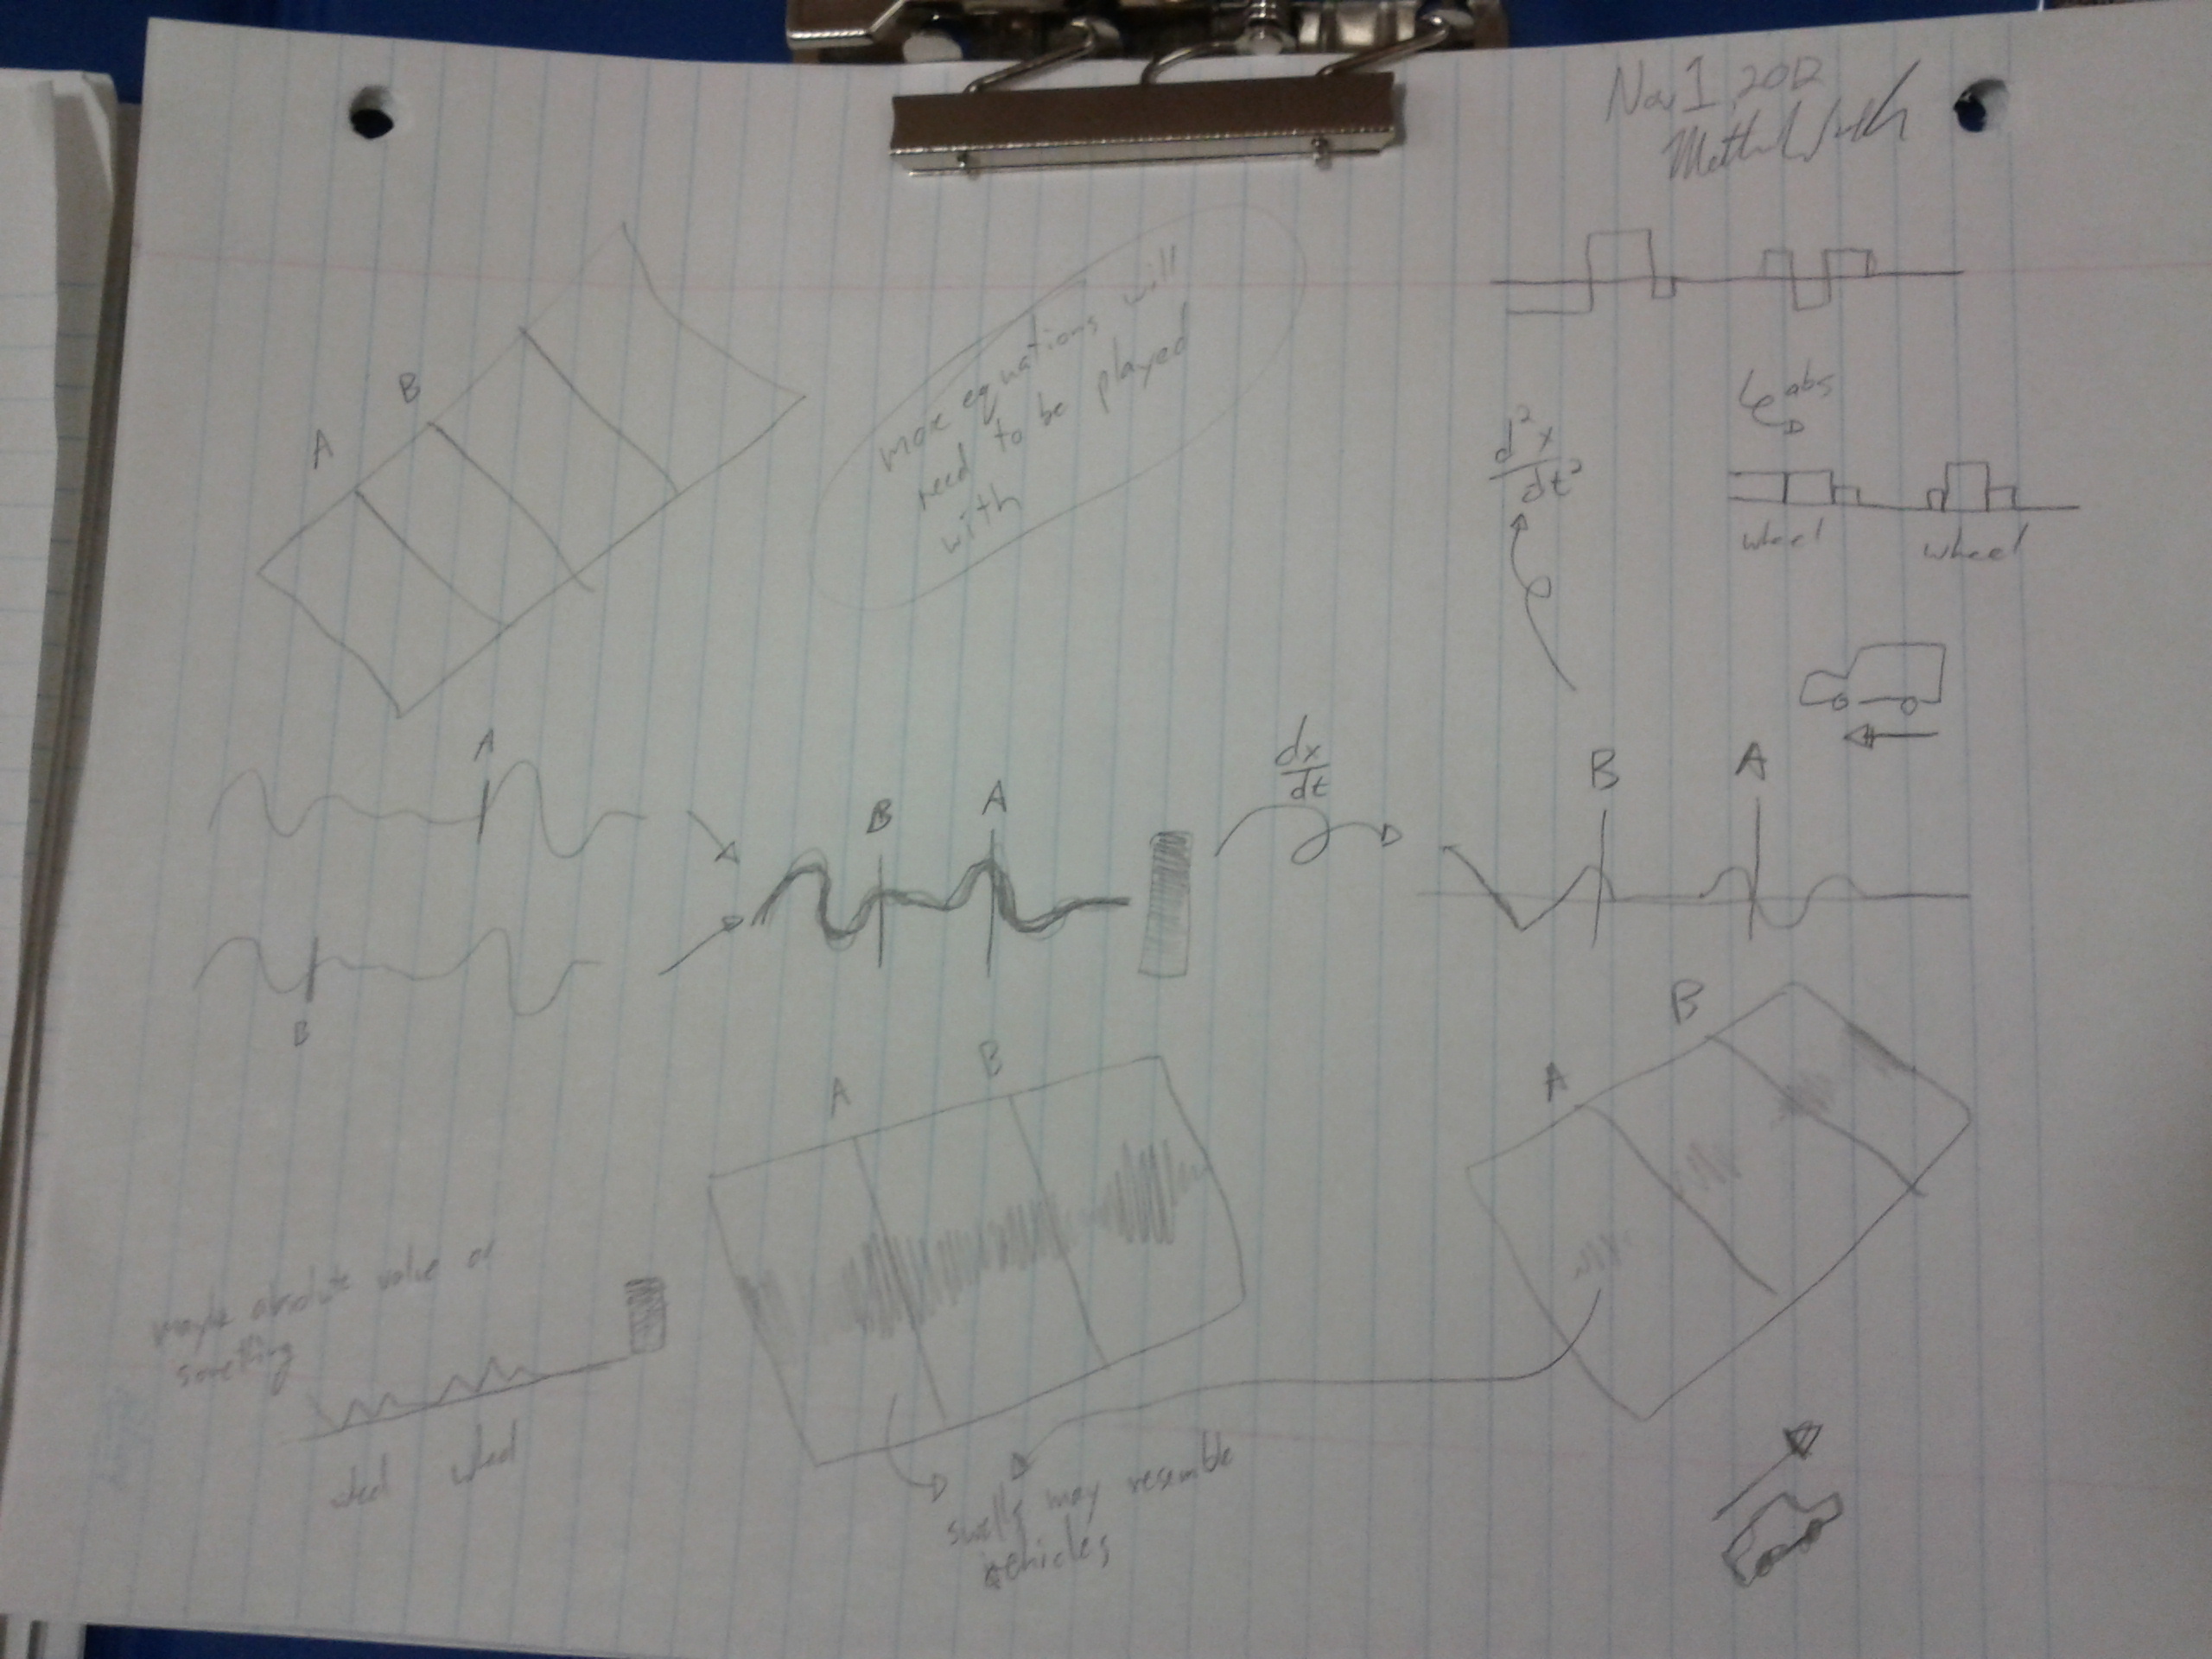 Nov 1, 2012
A
B
more equations will
need to be played
with
abs
d²x
dt²
wheel
wheel
A
B
B
A
dx
dt
B
A
A
B
A
B
maybe absolute value or
something
wheel
wheel
swells may resemble
vehicles